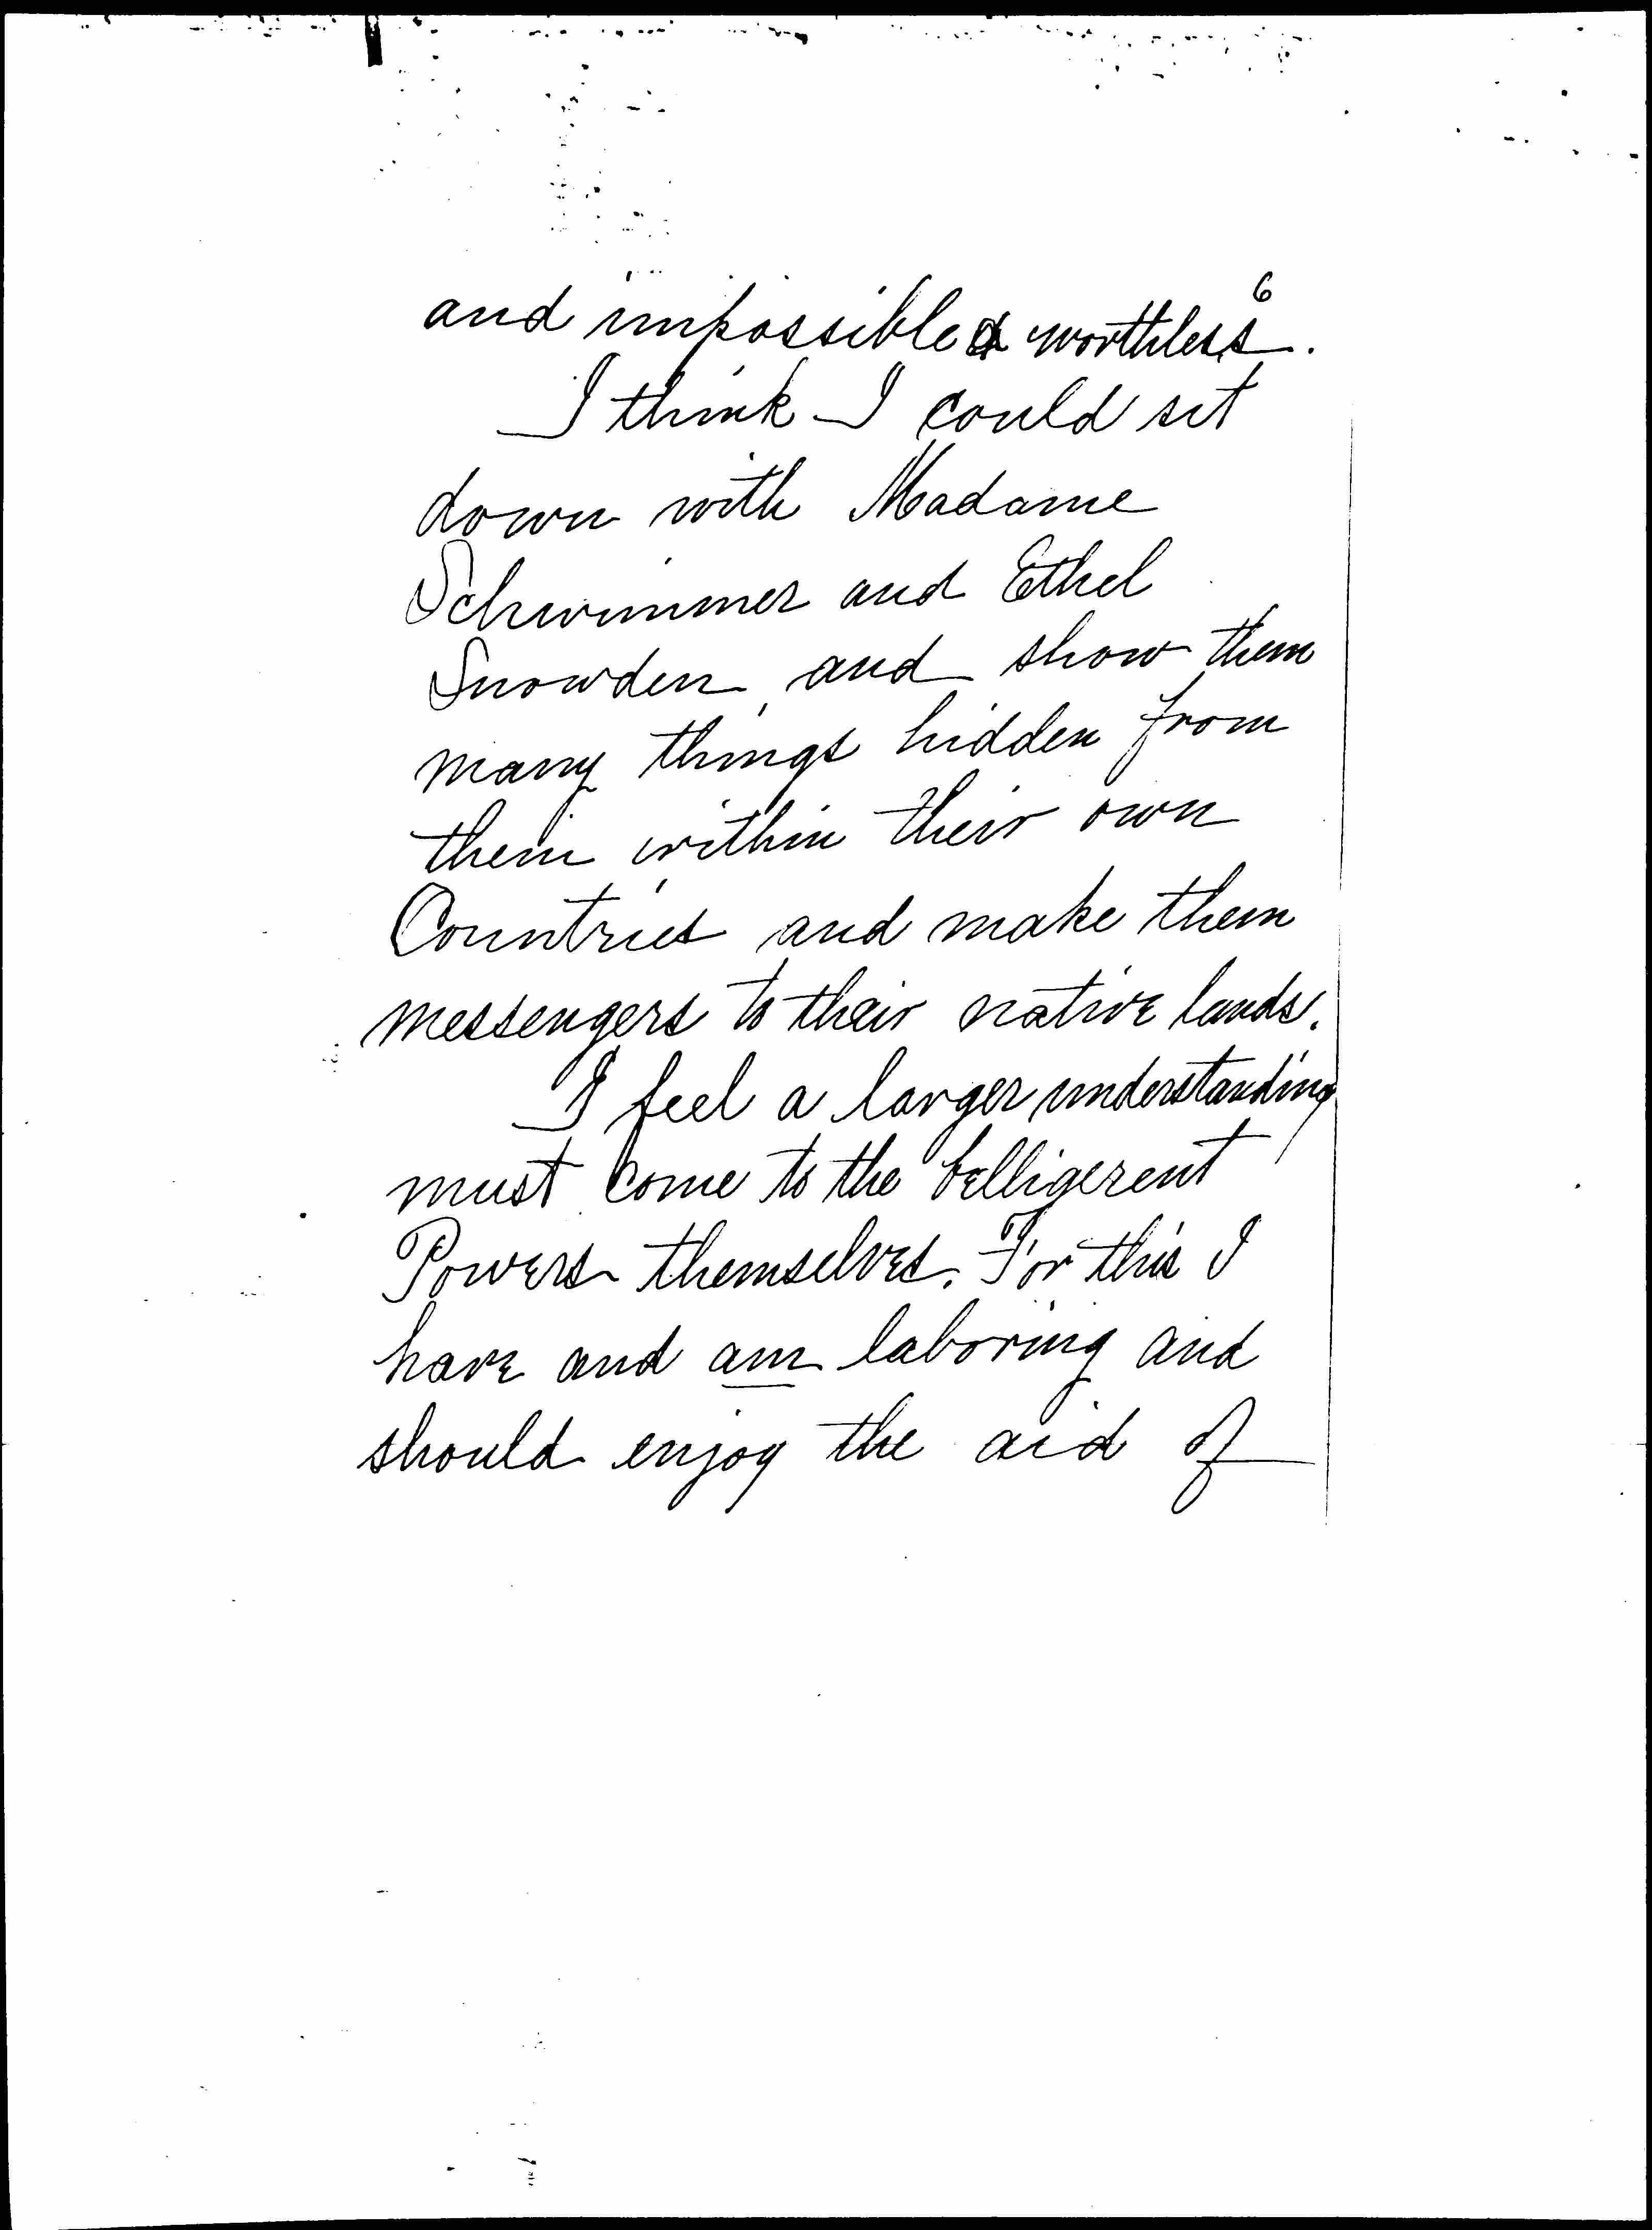 6
and impossible & worthless.
I think I could sit
down with Madame
Schwimmer and Ethel
Snowden and show them
many things hidden from
them within their own
Countries and make them
messengers to their native lands.
I feel a larger understanding
must come to the belligerent
Powers themselves. For this I
have and am laboring and
should enjoy the aid of